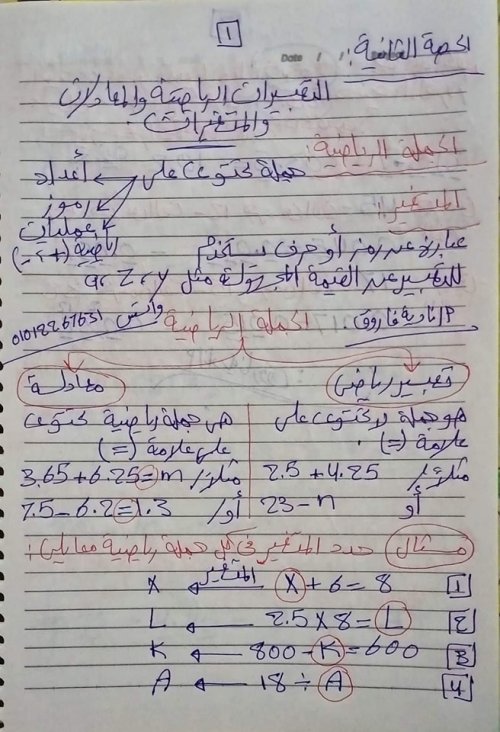 1
الحصة الثانية:
Date / /
التعبيرات الرياضية والمعادلات
والمتغيرات
الجملة الرياضية:
جملة تحتوى على ← أعداد
رموز
عمليات
رياضية (+,-)
المتغير:
عبارة عن رمز أو حرف يستخدم
للتعبير عن القيمة المجهولة مثل y, Z, a
أ/نادية فاروق
واتس
الجملة الرياضية
تعبير رياضى
معادلة
هو جملة لا تحتوى على
علامة (=)
مثلاً/ 2.5 + 4.25
أو 23 - n
هى جملة رياضية تحتوى
على علامة (=)
مثلاً/ 3.65 + 6.25 = m
أو/ 7.5 - 6.2 = 1.3
مثال حدد المتغير فى كل جملة رياضية مما يلى:
1 X + 6 = 8 ← المتغير X
2 2.5 X 8 = L ← L
3 800 - K = 600 ← K
4 18 ÷ A ← A